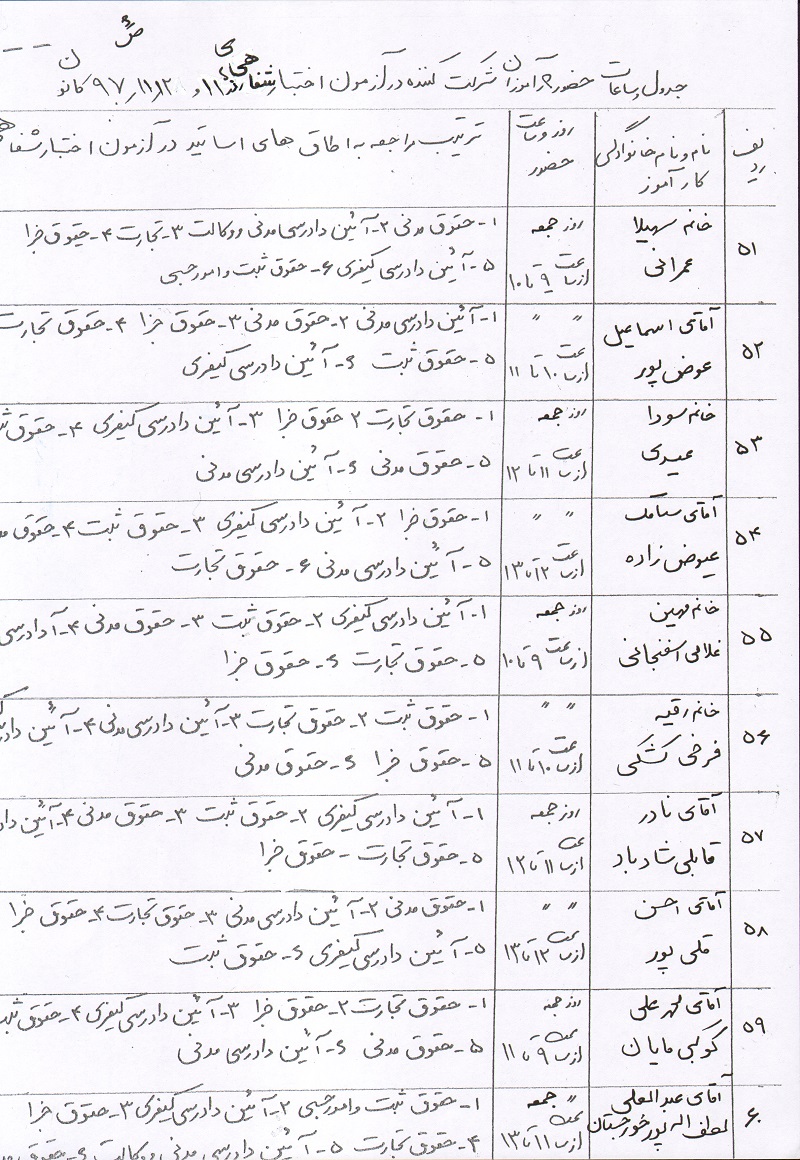 جدول ساعات حضور کارآموزان شرکت کننده در آزمون اختبار شفاهی ۱۱ و ۹۷/۱۱/۱۲ کانو
ردیف
نام و نام خانوادگی
کارآموز
روز و ساعت
حضور
ترتیب مراجعه به اطاق های اساتید در آزمون اختبار شفا
۵۱
خانم سهیلا
عمرانی
روز جمعه
از ساعت ۹ تا ۱۰
۱- حقوق مدنی ۲- آئین دادرسی مدنی و وکالت ۳- تجارت ۴- حقوق جزا
۵- آئین دادرسی کیفری ۶- حقوق ثبت و امور حسبی
۵۲
آقای اسماعیل
عوض پور
〃 〃
از ساعت ۱۰ تا ۱۱
۱- آئین دادرسی مدنی ۲- حقوق مدنی ۳- حقوق جزا ۴- حقوق تجارت
۵- حقوق ثبت ۶- آئین دادرسی کیفری
۵۳
خانم سودا
عیدی
روز جمعه
از ساعت ۱۱ تا ۱۲
۱- حقوق تجارت ۲ حقوق جزا ۳- آئین دادرسی کیفری ۴- حقوق ث
۵- حقوق مدنی ۶- آئین دادرسی مدنی
۵۴
آقای سیامک
عیوض زاده
〃 〃
از ساعت ۱۲ تا ۱۳
۱- حقوق جزا ۲- آئین دادرسی کیفری ۳- حقوق ثبت ۴- حقوق مد
۵- آئین دادرسی مدنی ۶- حقوق تجارت
۵۵
خانم مهین
غلامی اسفنجانی
روز جمعه
از ساعت ۹ تا ۱۰
۱- آئین دادرسی کیفری ۲- حقوق ثبت ۳- حقوق مدنی ۴- آ دادرسی
۵- حقوق تجارت ۶- حقوق جزا
۵۶
خانم رقیه
فرخی کشکی
〃 〃
از ساعت ۱۰ تا ۱۱
۱- حقوق ثبت ۲- حقوق تجارت ۳- آئین دادرسی مدنی ۴- آئین دادر
۵- حقوق جزا ۶- حقوق مدنی
۵۷
آقای نادر
قابلی شادباد
روز جمعه
از ساعت ۱۱ تا ۱۲
۱- آئین دادرسی کیفری ۲- حقوق ثبت ۳- حقوق مدنی ۴- آئین داد
۵- حقوق تجارت - حقوق جزا
۵۸
آقای احسن
قلی پور
〃 〃
از ساعت ۱۲ تا ۱۳
۱- حقوق مدنی ۲- آئین دادرسی مدنی ۳- حقوق تجارت ۴- حقوق جزا
۵- آئین دادرسی کیفری ۶- حقوق ثبت
۵۹
آقای مهرعلی
کوکبی مایان
روز جمعه
از ساعت ۹ تا ۱۱
۱- حقوق تجارت ۲- حقوق جزا ۳- آئین دادرسی کیفری ۴- حقوق ثب
۵- حقوق مدنی ۶- آئین دادرسی مدنی
۶۰
آقای عبدالعلی
لطف اله پور خورجستان
〃 جمعه
از ساعت ۱۱ تا ۱۳
۱- حقوق ثبت و امور حسبی ۲- آئین دادرسی کیفری ۳- حقوق جزا
۴- حقوق تجارت ۵- آئین دادرسی مدنی و وکالت ۶- حقوق